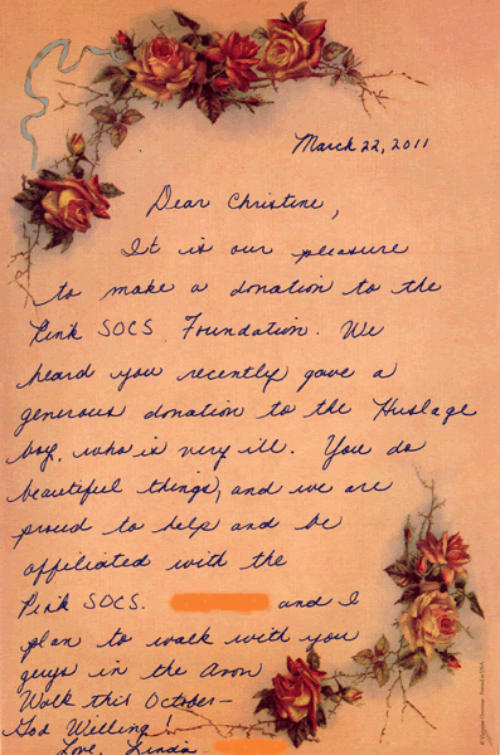 March 22, 2011
Dear Christine,
It is our pleasure
to make a donation to the
Pink SOCS Foundation. We
heard you recently gave a
generous donation to the Huslage
boy, who is very ill. You do
beautiful things, and we are
proud to help and be
affiliated with the
Pink SOCS. and I
plan to walk with you
guys in the Avon
Walk this October -
God Willing!
Love, Linda